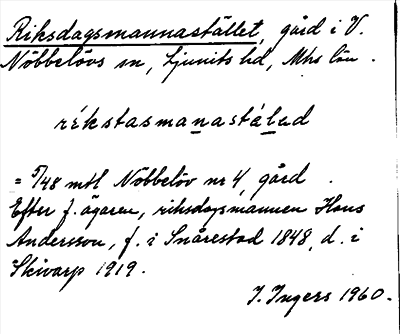 Riksdagsmannastället, gård i V.
Nöbbelövs sn, Ljunits hd, Mhs län.
rikstasmanastálad
= 5/48 mtl Nöbbelöv nr 4, gård.
Efter f. ägaren, riksdagsmannen Hans
Andersson, f. i Snårestad 1848, d. i
Skivarp 1919.
I. Ingers 1960.